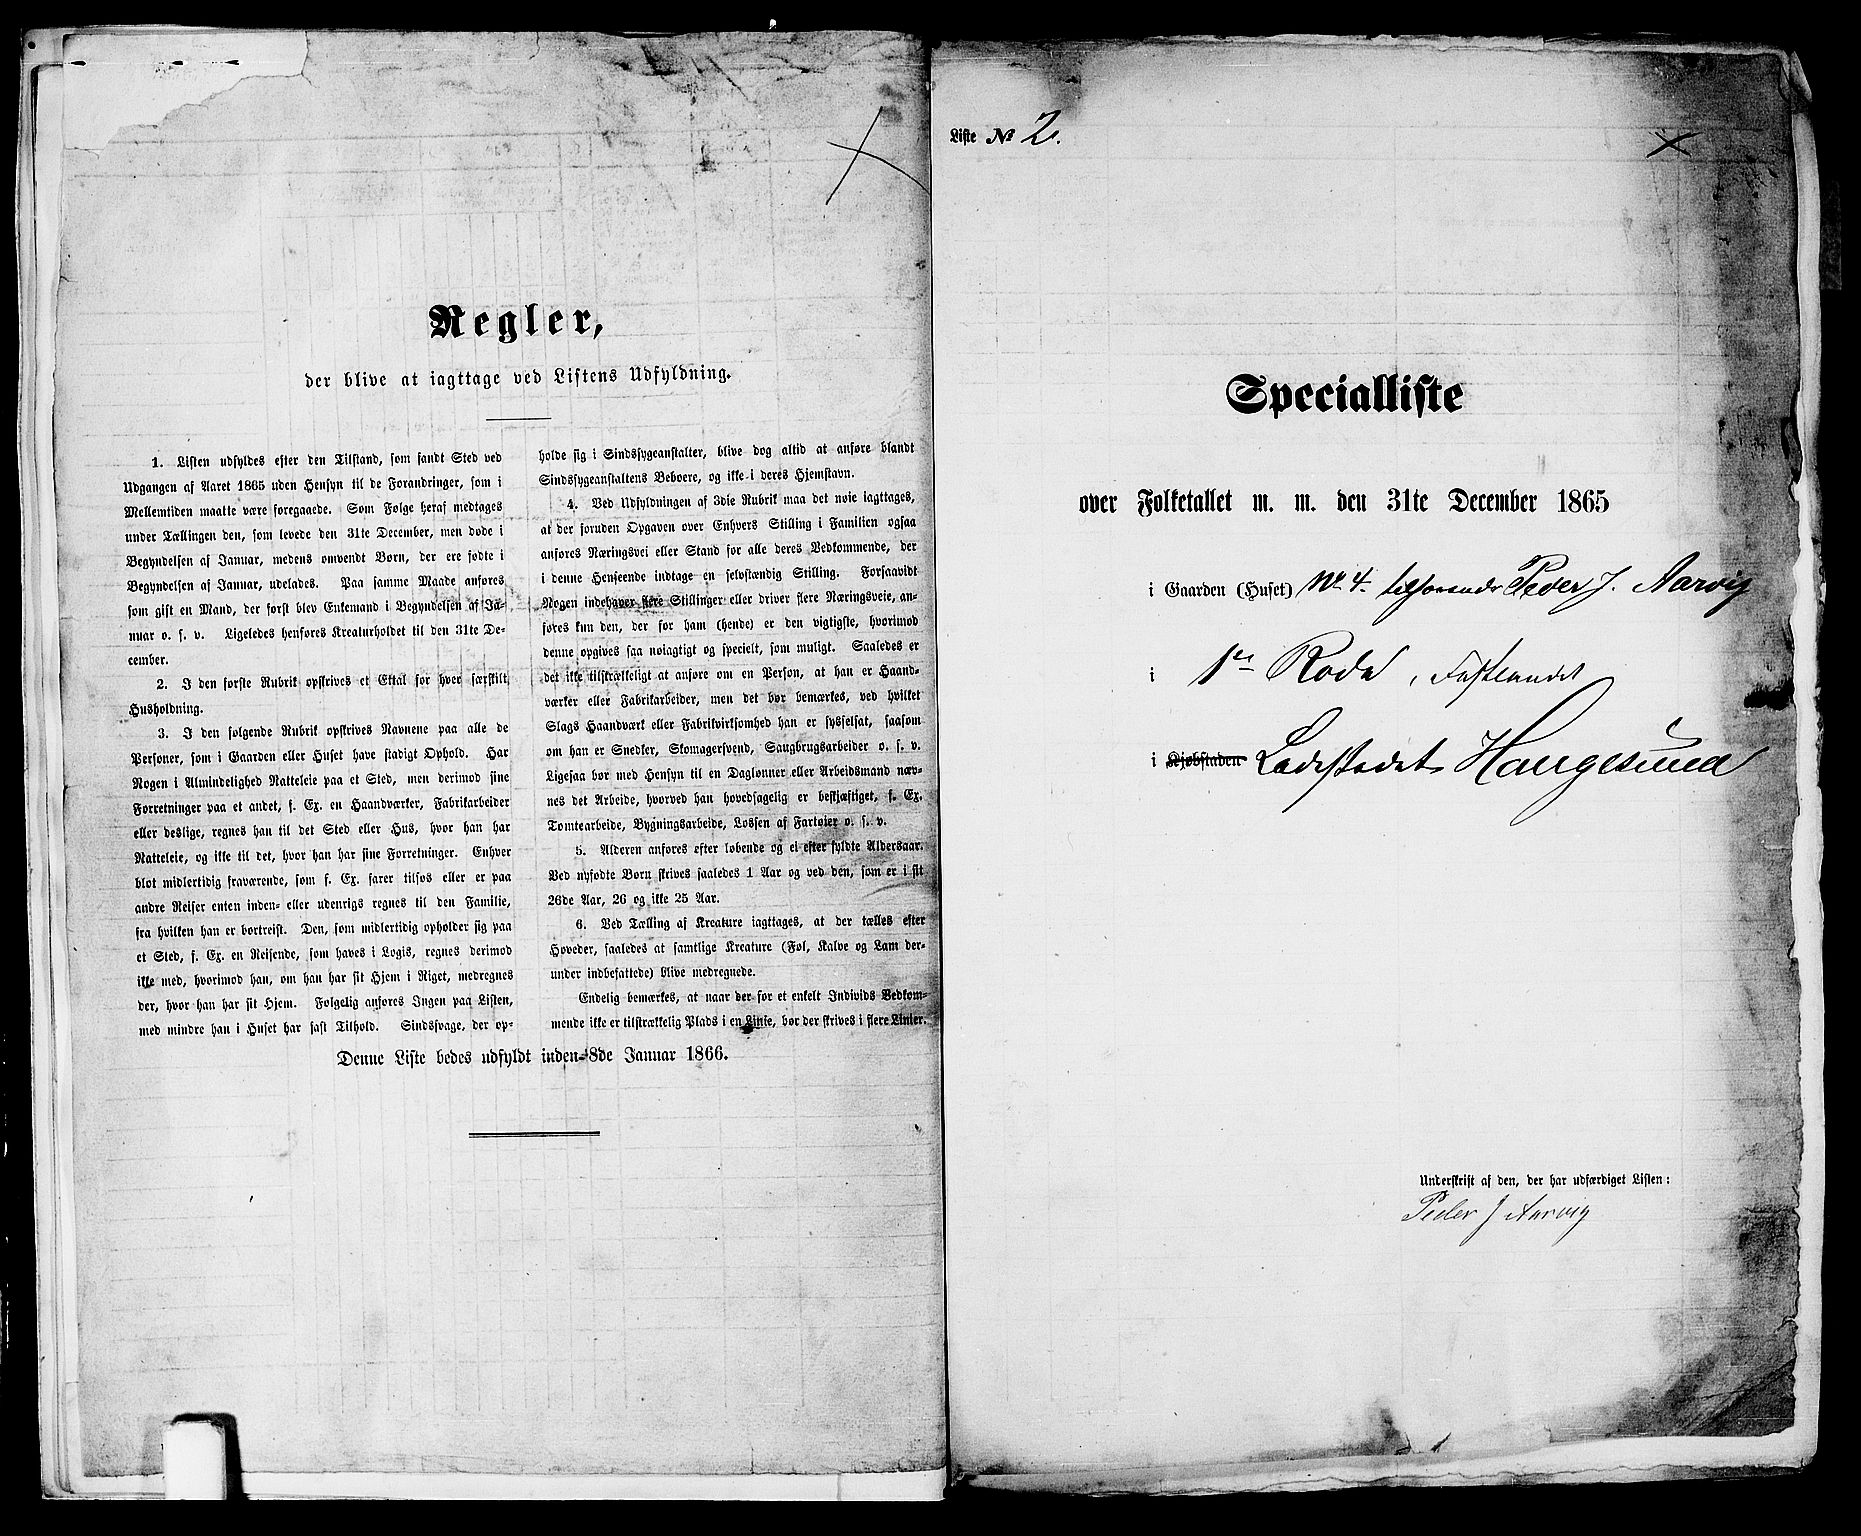 Regler,
der blive at iagttage ved Listens Udfyldning.
1. Listen udfyldes efter den Tilstand, som fandt Sted ved
Udgangen af Aaret 1865 uden Hensyn til de Forandringer, som i
Mellemtiden maatte være foregaaede. Som Følge heraf medtages
under Tællingen den, som levede den 31te December, men døde i
Begyndelsen af Januar, medens omvendt Børn, der ere fødte i
Begyndelsen af Januar, udelades. Paa samme Maade anføres
som gift en Mand, der først blev Enkemand i Begyndelsen af Ja-
nuar o. s. v. Ligeledes henføres Kreaturholdet til den 31te De-
cember.
2. I den første Rubrik opskrives et Ettal for hver særskilt
Husholdning.
3. I den følgende Rubrik opskrives Navnene paa alle de
Personer, som i Gaarden eller Huset have stadigt Ophold. Har
Nogen i Almindelighed Natteleie paa et Sted, men derimod sine
Forretninger paa et andet, f. Ex. en Haandværker, Fabrikarbeider
eller deslige, regnes han til det Sted eller Hus, hvor han har
Natteleie, og ikke til det, hvor han har sine Forretninger. Enhver
blot midlertidig fraværende, som f. Ex. farer tilsøs eller er paa
andre Reiser enten inden- eller udenrigs regnes til den Familie,
fra hvilken han er bortreist. Den, som midlertidig opholder sig paa
et Sted, f. Ex. en Reisende, som haves i Logis, regnes derimod
ikke med, hvorimod han, om han har sit Hjem i Riget, medregnes
der, hvor han har sit Hjem. Følgelig anføres Ingen paa Listen,
med mindre han i Huset har fast Tilhold. Sindssvage, der op-
holde sig i Sindssygeanstalter, blive dog altid at anføre blandt
Sindssygeanstaltens Beboere, og ikke i deres Hjemstavn.
4. Ved Udfyldningen af 3die Rubrik maa det nøie iagttages,
at der foruden Opgaven over Enhvers Stilling i Familien ogsaa
anføres Næringsvei eller Stand for alle deres Vedkommende, der
i denne Henseende indtage en selvstændig Stilling. Forsaavidt
Nogen indehaver flere Stillinger eller driver flere Næringsveie, an-
føres kun den, der for ham (hende) er den vigtigste, hvorimod
denne opgives saa nøiagtigt og specielt, som muligt. Saaledes er
det ikke tilstrækkeligt at anføre om en Person, at han er Haand-
værker eller Fabrikarbeider, men det bør bemærkes, ved hvilket
Slags Haandværk eller Fabrikvirksomhed han er sysselsat, saasom
om han er Snedker, Skomagersvend, Saugbrugsarbeider o. s. v.
Ligesaa bør med Hensyn til en Daglønner eller Arbeidsmand næv-
nes det Arbeide, hvorved han hovedsagelig er beskjæftiget, f. Ex.
Tomtearbeide, Bygningsarbeide, Lossen af Fartøier o. s. v.
5. Alderen anføres efter løbende og ei efter fyldte Aldersaar.
Ved nyfødte Børn skrives saaledes 1 Aar og ved den, som er i sit
26de Aar, 26 og ikke 25 Aar.
6. Ved Tælling af Kreature iagttages, at der tælles efter
Hoveder, saaledes at samtlige Kreature (Føl, Kalve og Lam der-
under indbefattede) blive medregnede.
Endelig bemærkes, at naar der for et enkelt Individs Vedkom-
mende ikke er tilstrækkelig Plads i en Linie, bør der skrives i flere Linier.
Denne Liste bedes udfyldt inden 8de Januar 1866.
Liste № 2.
Specialliste
over Folketallet m. m. den 31te December 1865
i Gaarden (Huset) No 4. tilhørende Peder J. Aarvig
i 1ste Rode, Fastlandet
i Kjøbstaden Ladestedet Haugesund
Underskrift af den, der har udfærdiget Listen:
Peder J Aarvig